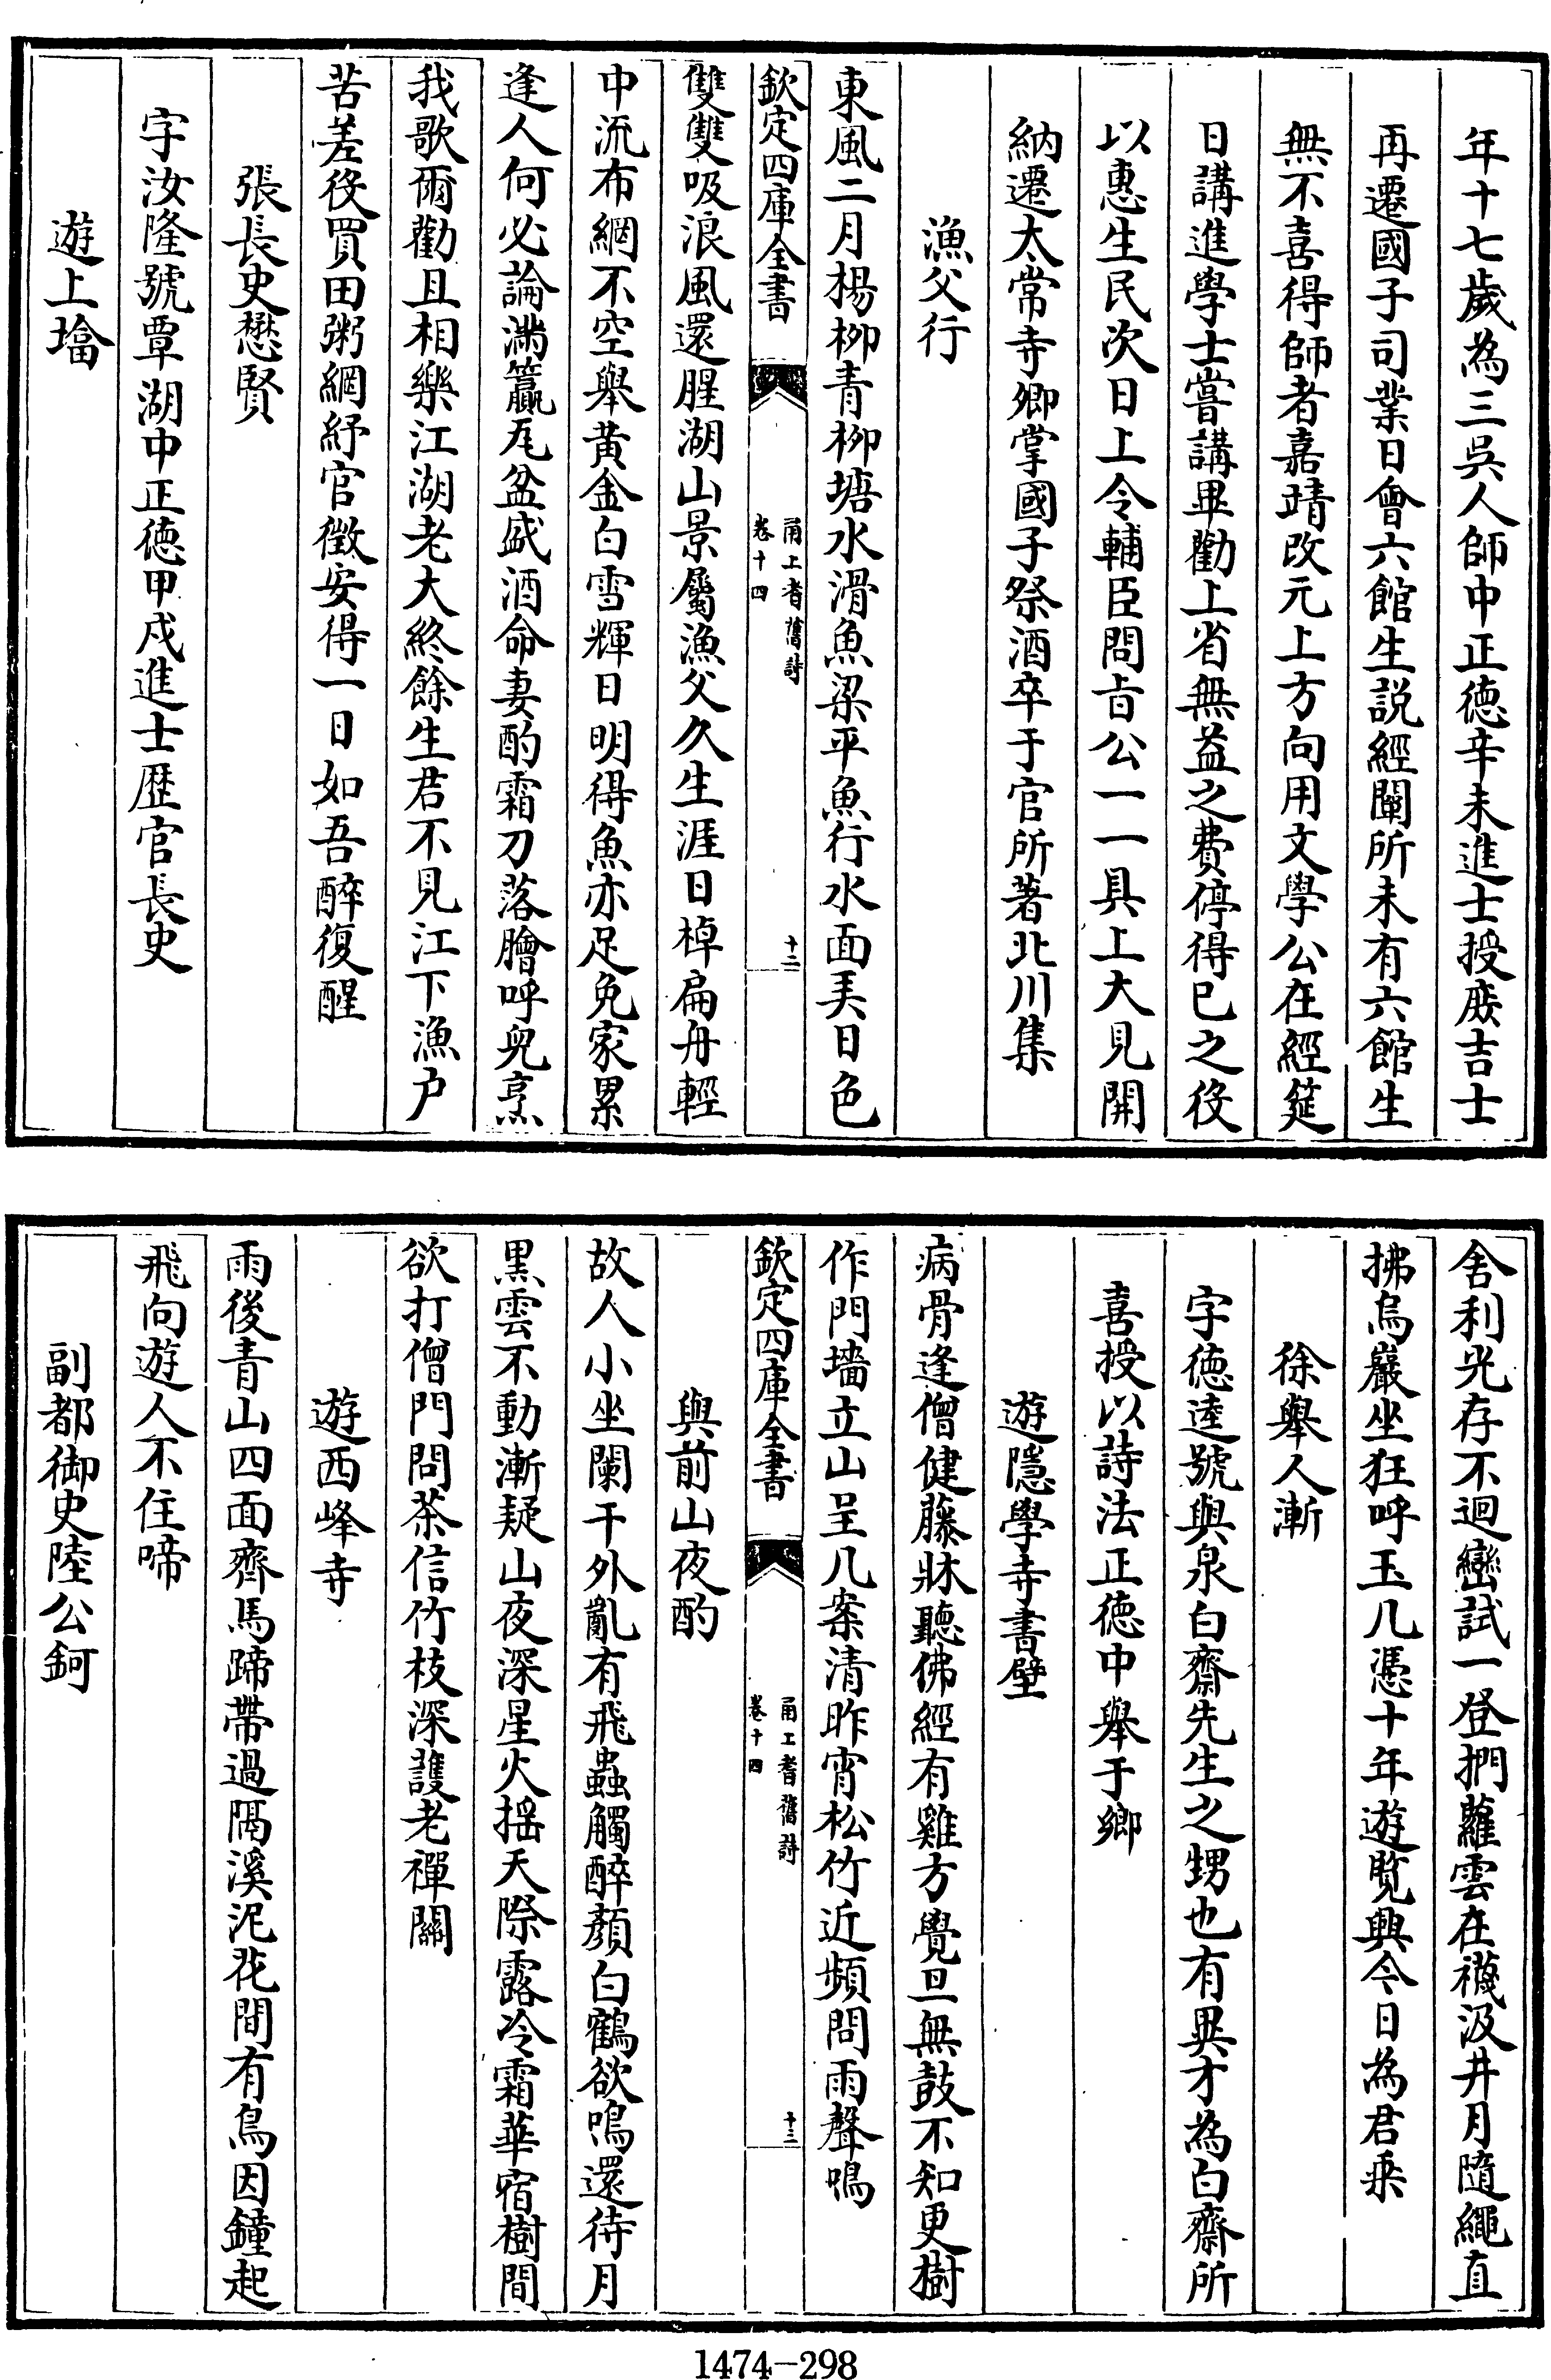 年十七歲為三吳人師中正徳辛未進士授庶吉士
再遷國子司業日㑹六館生説經闡所未有六館生
無不喜得師者嘉靖改元上方向用文學公在經筵
日講進學士嘗講畢勸上省無益之費停得已之役
以惠生民次日上令輔臣問㫖公一一具上大見開
納遷太常寺卿掌國子祭酒卒于官所著北川集
漁父行
東風二月楊栁青栁塘水滑魚梁平魚行水面美日色
欽定四庫全書
甬上耆舊詩
卷十四
十二
雙雙吸浪風還腥湖山景屬漁父久生涯日棹扁舟輕
中流布網不空舉黄金白雪輝日明得魚亦足免家累
逢人何必論滿籯瓦盆盛酒命妻酌霜刀落膾呼兒烹
我歌爾勸且相樂江湖老大終餘生君不見江下漁户
苦差役買田粥網紓官徵安得一日如吾醉復醒
張長史懋賢
字汝隆號覃湖中正徳甲戍進士歴官長史
遊上塔
舍利光存不迴巒試一登捫蘿雲在襪汲井月隨繩直
拂烏巖坐狂呼玉几憑十年遊覧興今日為君乗
徐舉人漸
字徳逵號與泉白齋先生之甥也有異才為白齋所
喜授以詩法正徳中舉于鄉
遊隱學寺書壁
病骨逢僧健藤牀聽佛經有雞方覺旦無鼓不知更樹
作門墻立山呈几案清昨宵松竹近頻問雨聲鳴
欽定四庫全書
甬上耆舊詩
卷十四
十三
與前山夜酌
故人小坐闌干外亂有飛蟲觸醉顔白鶴欲鳴還待月
黒雲不動漸疑山夜深星火揺天際露冷霜華宿樹間
欲打僧門問茶信竹枝深護老禪關
遊西峰寺
雨後青山四面齊馬蹄帶過隔溪泥花間有鳥因鐘起
飛向遊人不住啼
副都御史陸公鈳
1474-298